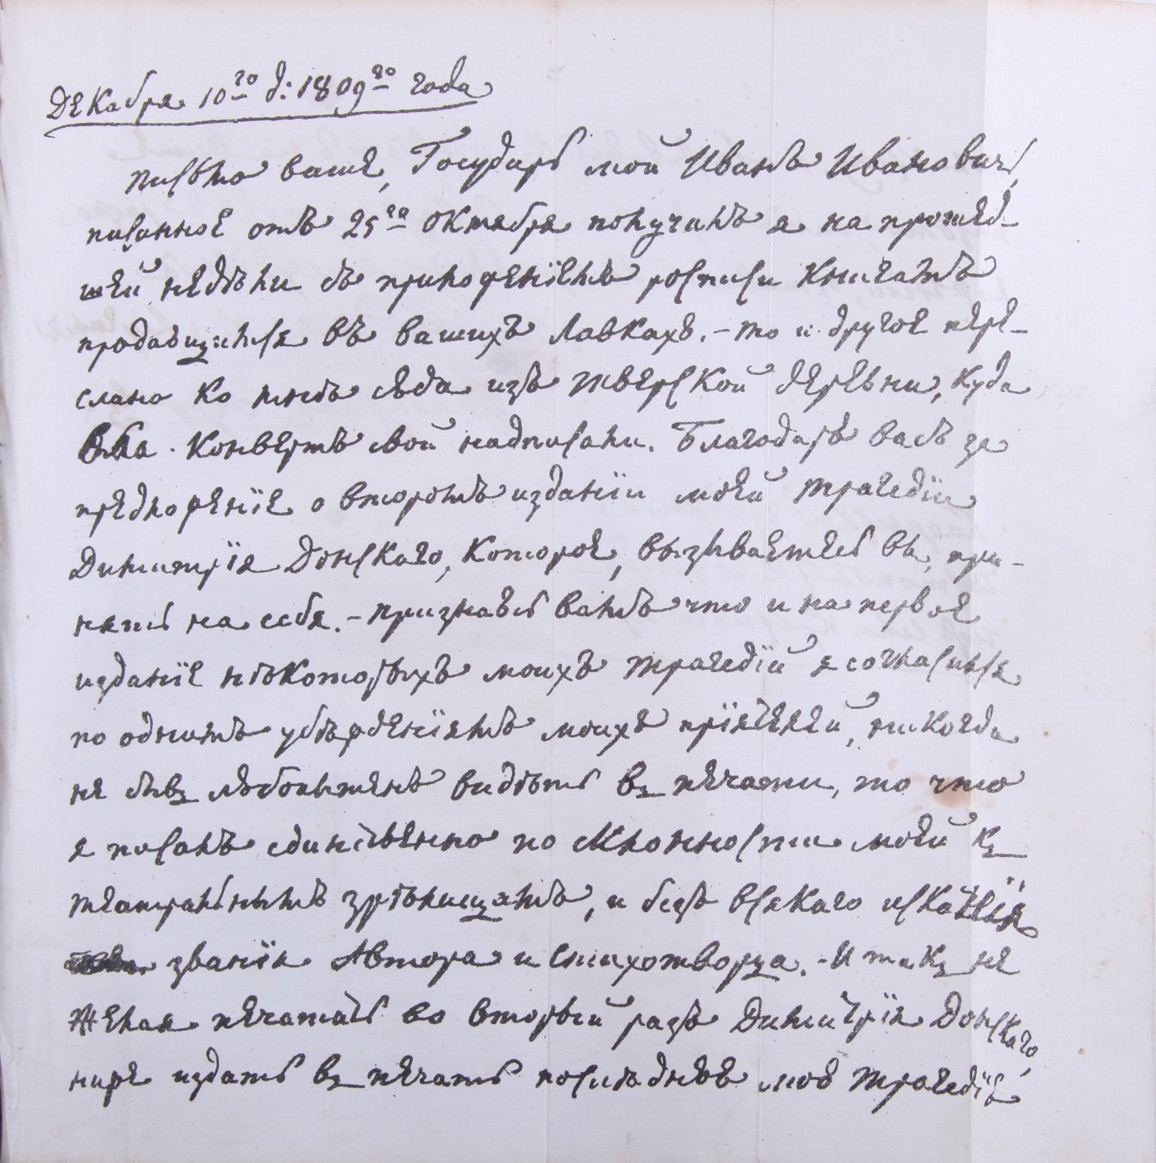 Декабря 10го д: 1809го года
Письмо ваше, Государь мой Иванъ Ивановичь,
писанное отъ 25го Октября получилъ я на прошед-
шей недѣли съ приложенiемъ росписи книгамъ
продающимся въ вашихъ лавкахъ. - то и другое пере-
слано ко мнѣ сюда изъ Тверской деревни, куда
вы конвертъ свой надписали. Благодарю васъ за
предложенiе о второмъ изданiи моей трагедiи
Димитрiя Донскаго, которое, вызываетесь вы, при-
нять на себя. - признаюсь вамъ что и на первое
изданiе нѣкоторыхъ моихъ трагедiй я согласился
по однимъ убѣжденiямъ моихъ прiятелей, никогда
не бывъ любопытенъ видѣть въ печати, то что
я писалъ единственно по склонности моей къ
театральнымъ зрѣлищамъ, и безъ всякаго исканiя
званiя Автора и Стихотворца. - И такъ не
желая печатать во вторый разъ Димитрiя Донскаго,
ниже издать въ печать послѣднюю мою трагедiю